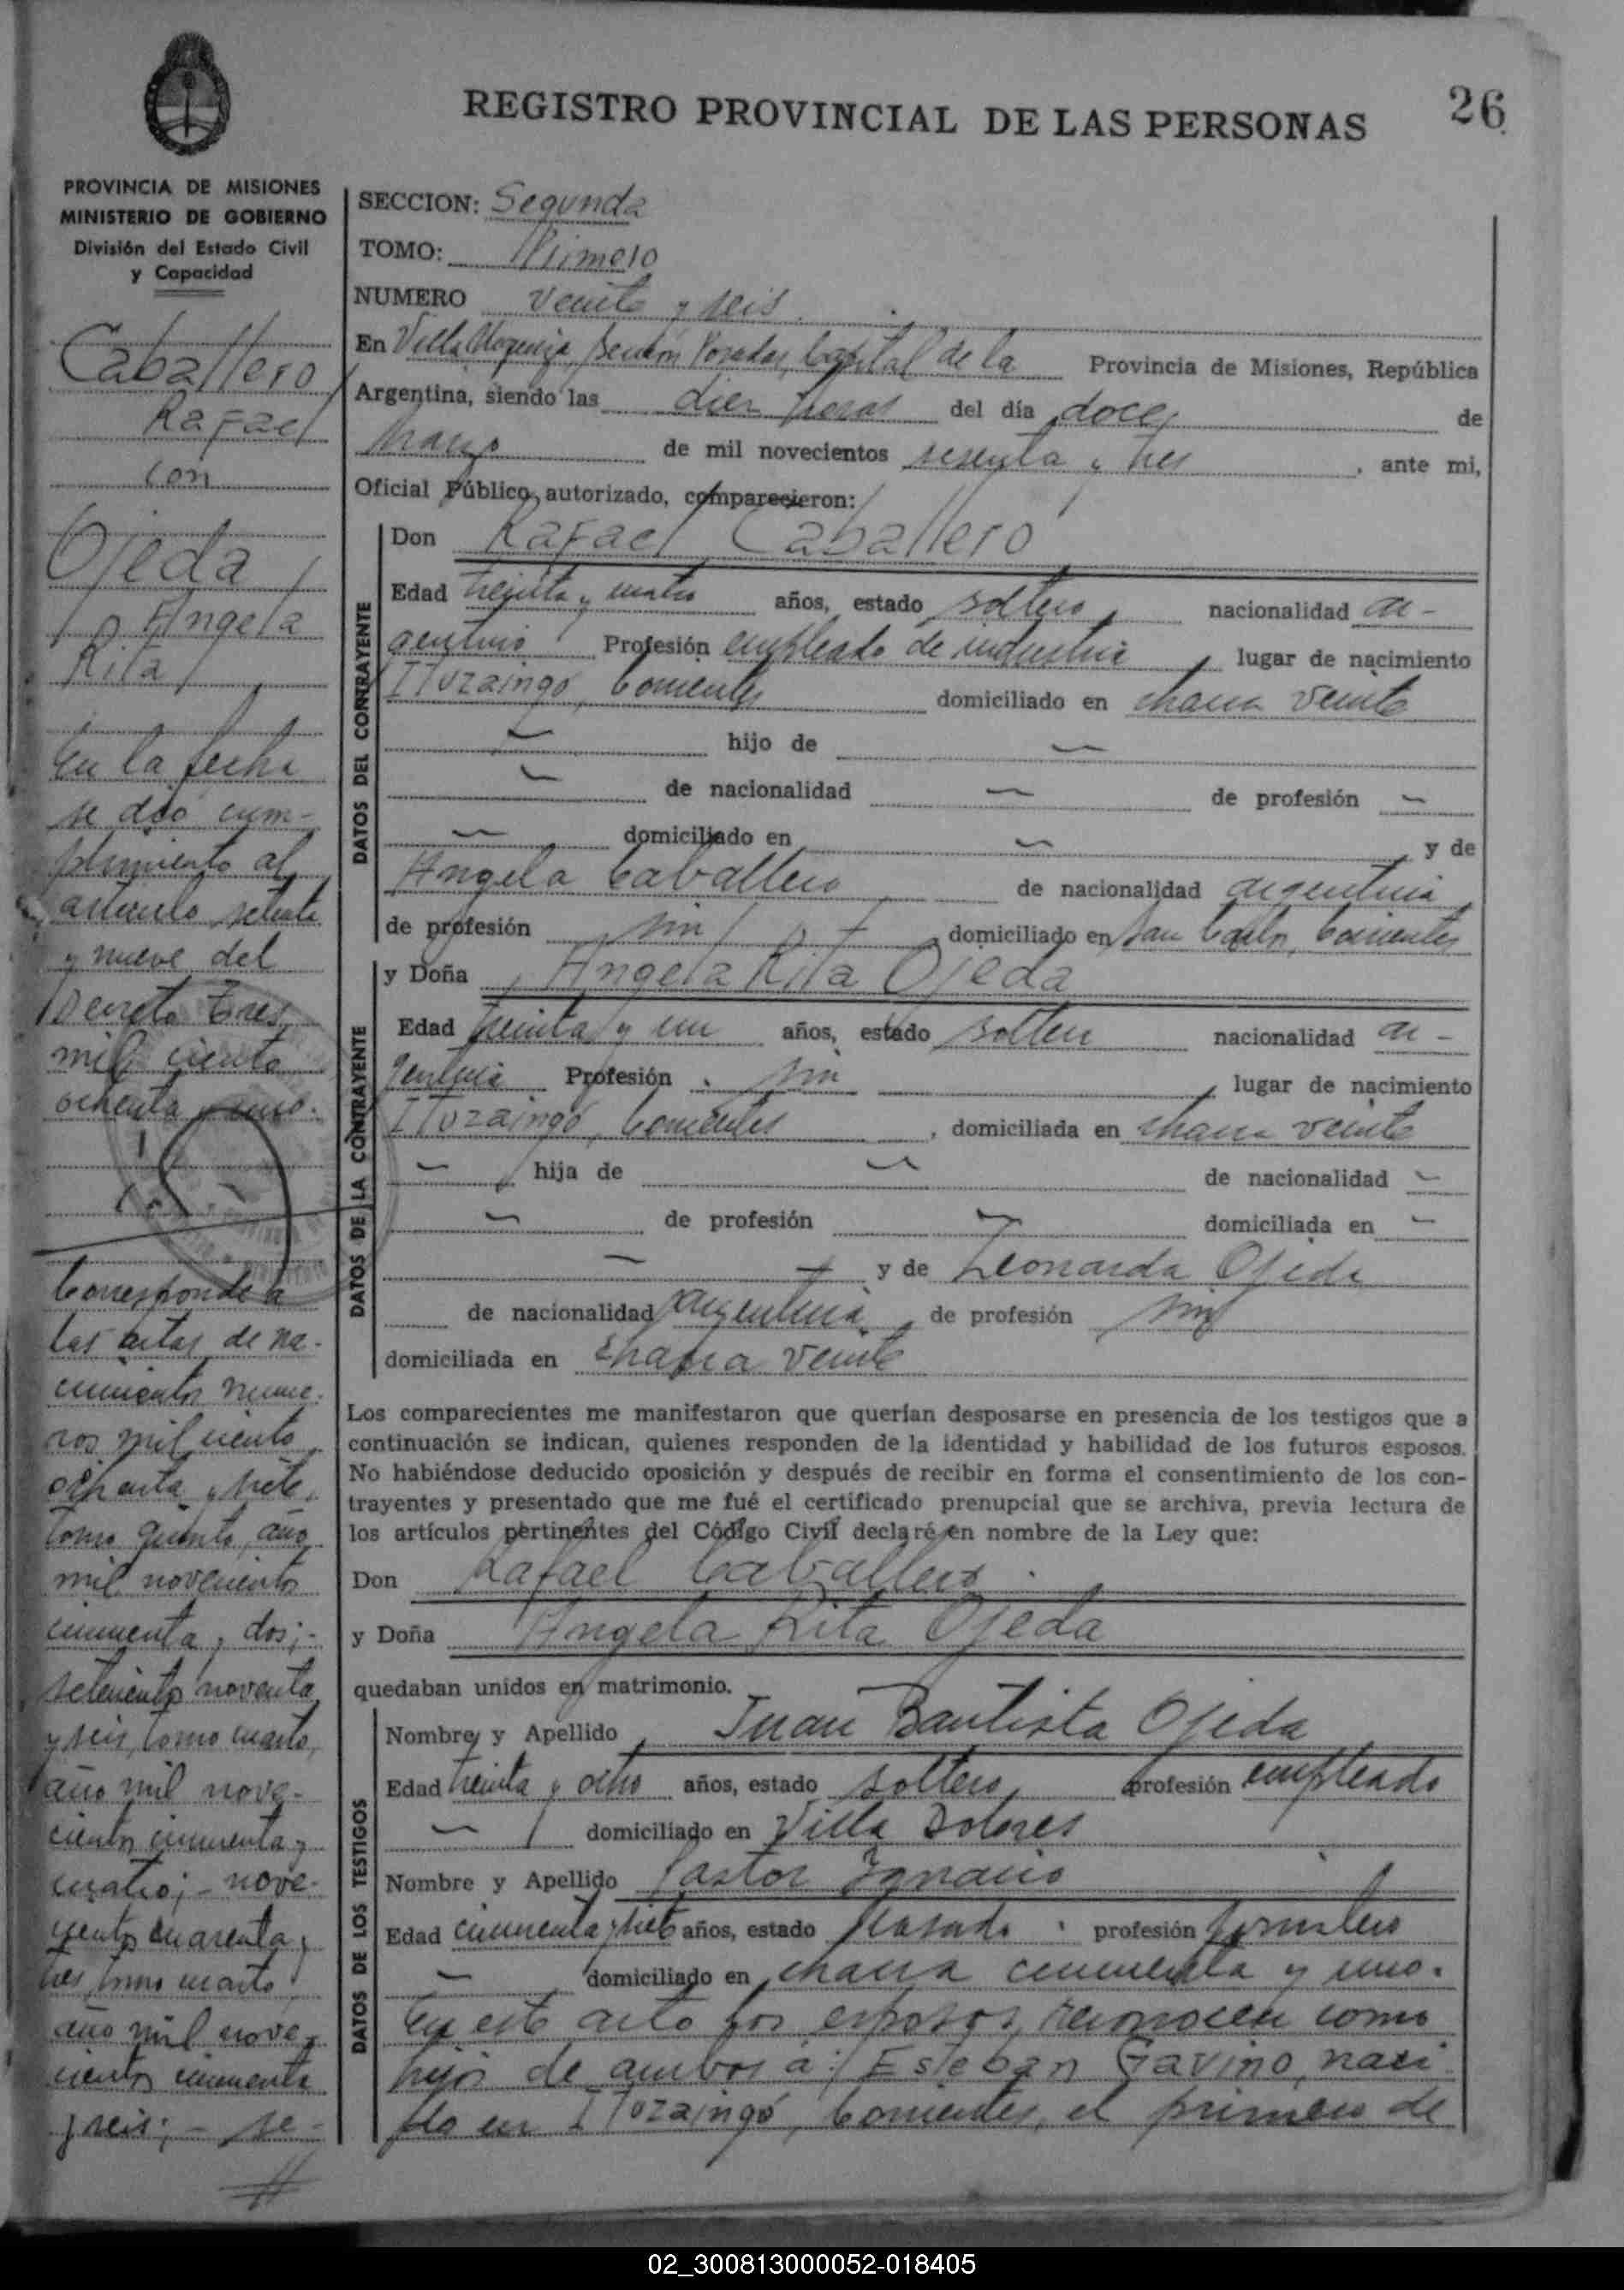 REGISTRO PROVINCIAL DE LAS PERSONAS
26
PROVINCIA DE MISIONES
MINISTERIO DE GOBIERNO
División del Estado Civil
y Capacidad
Caballero
Rafael
con
Ojeda
Angela
Rita
En la fecha
se dió cum-
plimiento al
artículo setenta
y nueve del
Decreto tres
mil ciento
ochenta y uno.
Corresponde a
las actas de na-
cimientos nume-
ros mil ciento
ochenta y siete,
tomo quinto, año
mil novecientos
cincuenta y dos;-
setecientos noventa
y seis, tomo cuarto,
año mil nove-
cientos cincuenta y
cuatro; - nove-
cientos cuarenta y
tres, tomo cuarto,
año mil nove-
cientos cincuenta
y seis; - se-
SECCION: Segunda
TOMO: Primero
NUMERO veinte y seis.
En Villa Urquiza, Sección Posadas, Capital de la Provincia de Misiones, República
Argentina, siendo las diez horas del día doce de
marzo de mil novecientos sesenta y tres, ante mi,
Oficial Público autorizado, comparecieron:
DATOS DEL CONTRAYENTE
Don Rafael Caballero
Edad treinta y cuatro años, estado soltero, nacionalidad ar-
gentino Profesión empleado de industria, lugar de nacimiento
Ituzaingó, Corrientes domiciliado en chacra veinte
— hijo de —
— de nacionalidad — de profesión —
— domiciliado en — y de
Angela Caballero de nacionalidad argentina,
de profesión sin, domiciliado en San Carlos, Corrientes
DATOS DE LA CONTRAYENTE
y Doña Angela Rita Ojeda
Edad treinta y un años, estado soltera nacionalidad ar-
gentina Profesión sin, lugar de nacimiento
Ituzaingó, Corrientes, domiciliada en chacra veinte
— hija de — de nacionalidad —
— de profesión — domiciliada en —
— y de Leonarda Ojeda
de nacionalidad argentina, de profesión sin
domiciliada en chacra veinte
Los comparecientes me manifestaron que querían desposarse en presencia de los testigos que a
continuación se indican, quienes responden de la identidad y habilidad de los futuros esposos.
No habiéndose deducido oposición y después de recibir en forma el consentimiento de los con-
trayentes y presentado que me fué el certificado prenupcial que se archiva, previa lectura de
los artículos pertinentes del Código Civil declaré en nombre de la Ley que:
Don Rafael Caballero
y Doña Angela Rita Ojeda
quedaban unidos en matrimonio.
DATOS DE LOS TESTIGOS
Nombre y Apellido Juan Bautista Ojeda
Edad treinta y ocho años, estado soltero, profesión empleado
— domiciliado en Villa Dolores
Nombre y Apellido Pastor Ignacio
Edad cincuenta y siete años, estado casado profesión jornalero
— domiciliado en chacra cincuenta y uno.
En este acto los esposos reconocen como
hijos de ambos a: Esteban Gavino, naci-
do en Ituzaingó, Corrientes, el primero de
02_300813000052-018405